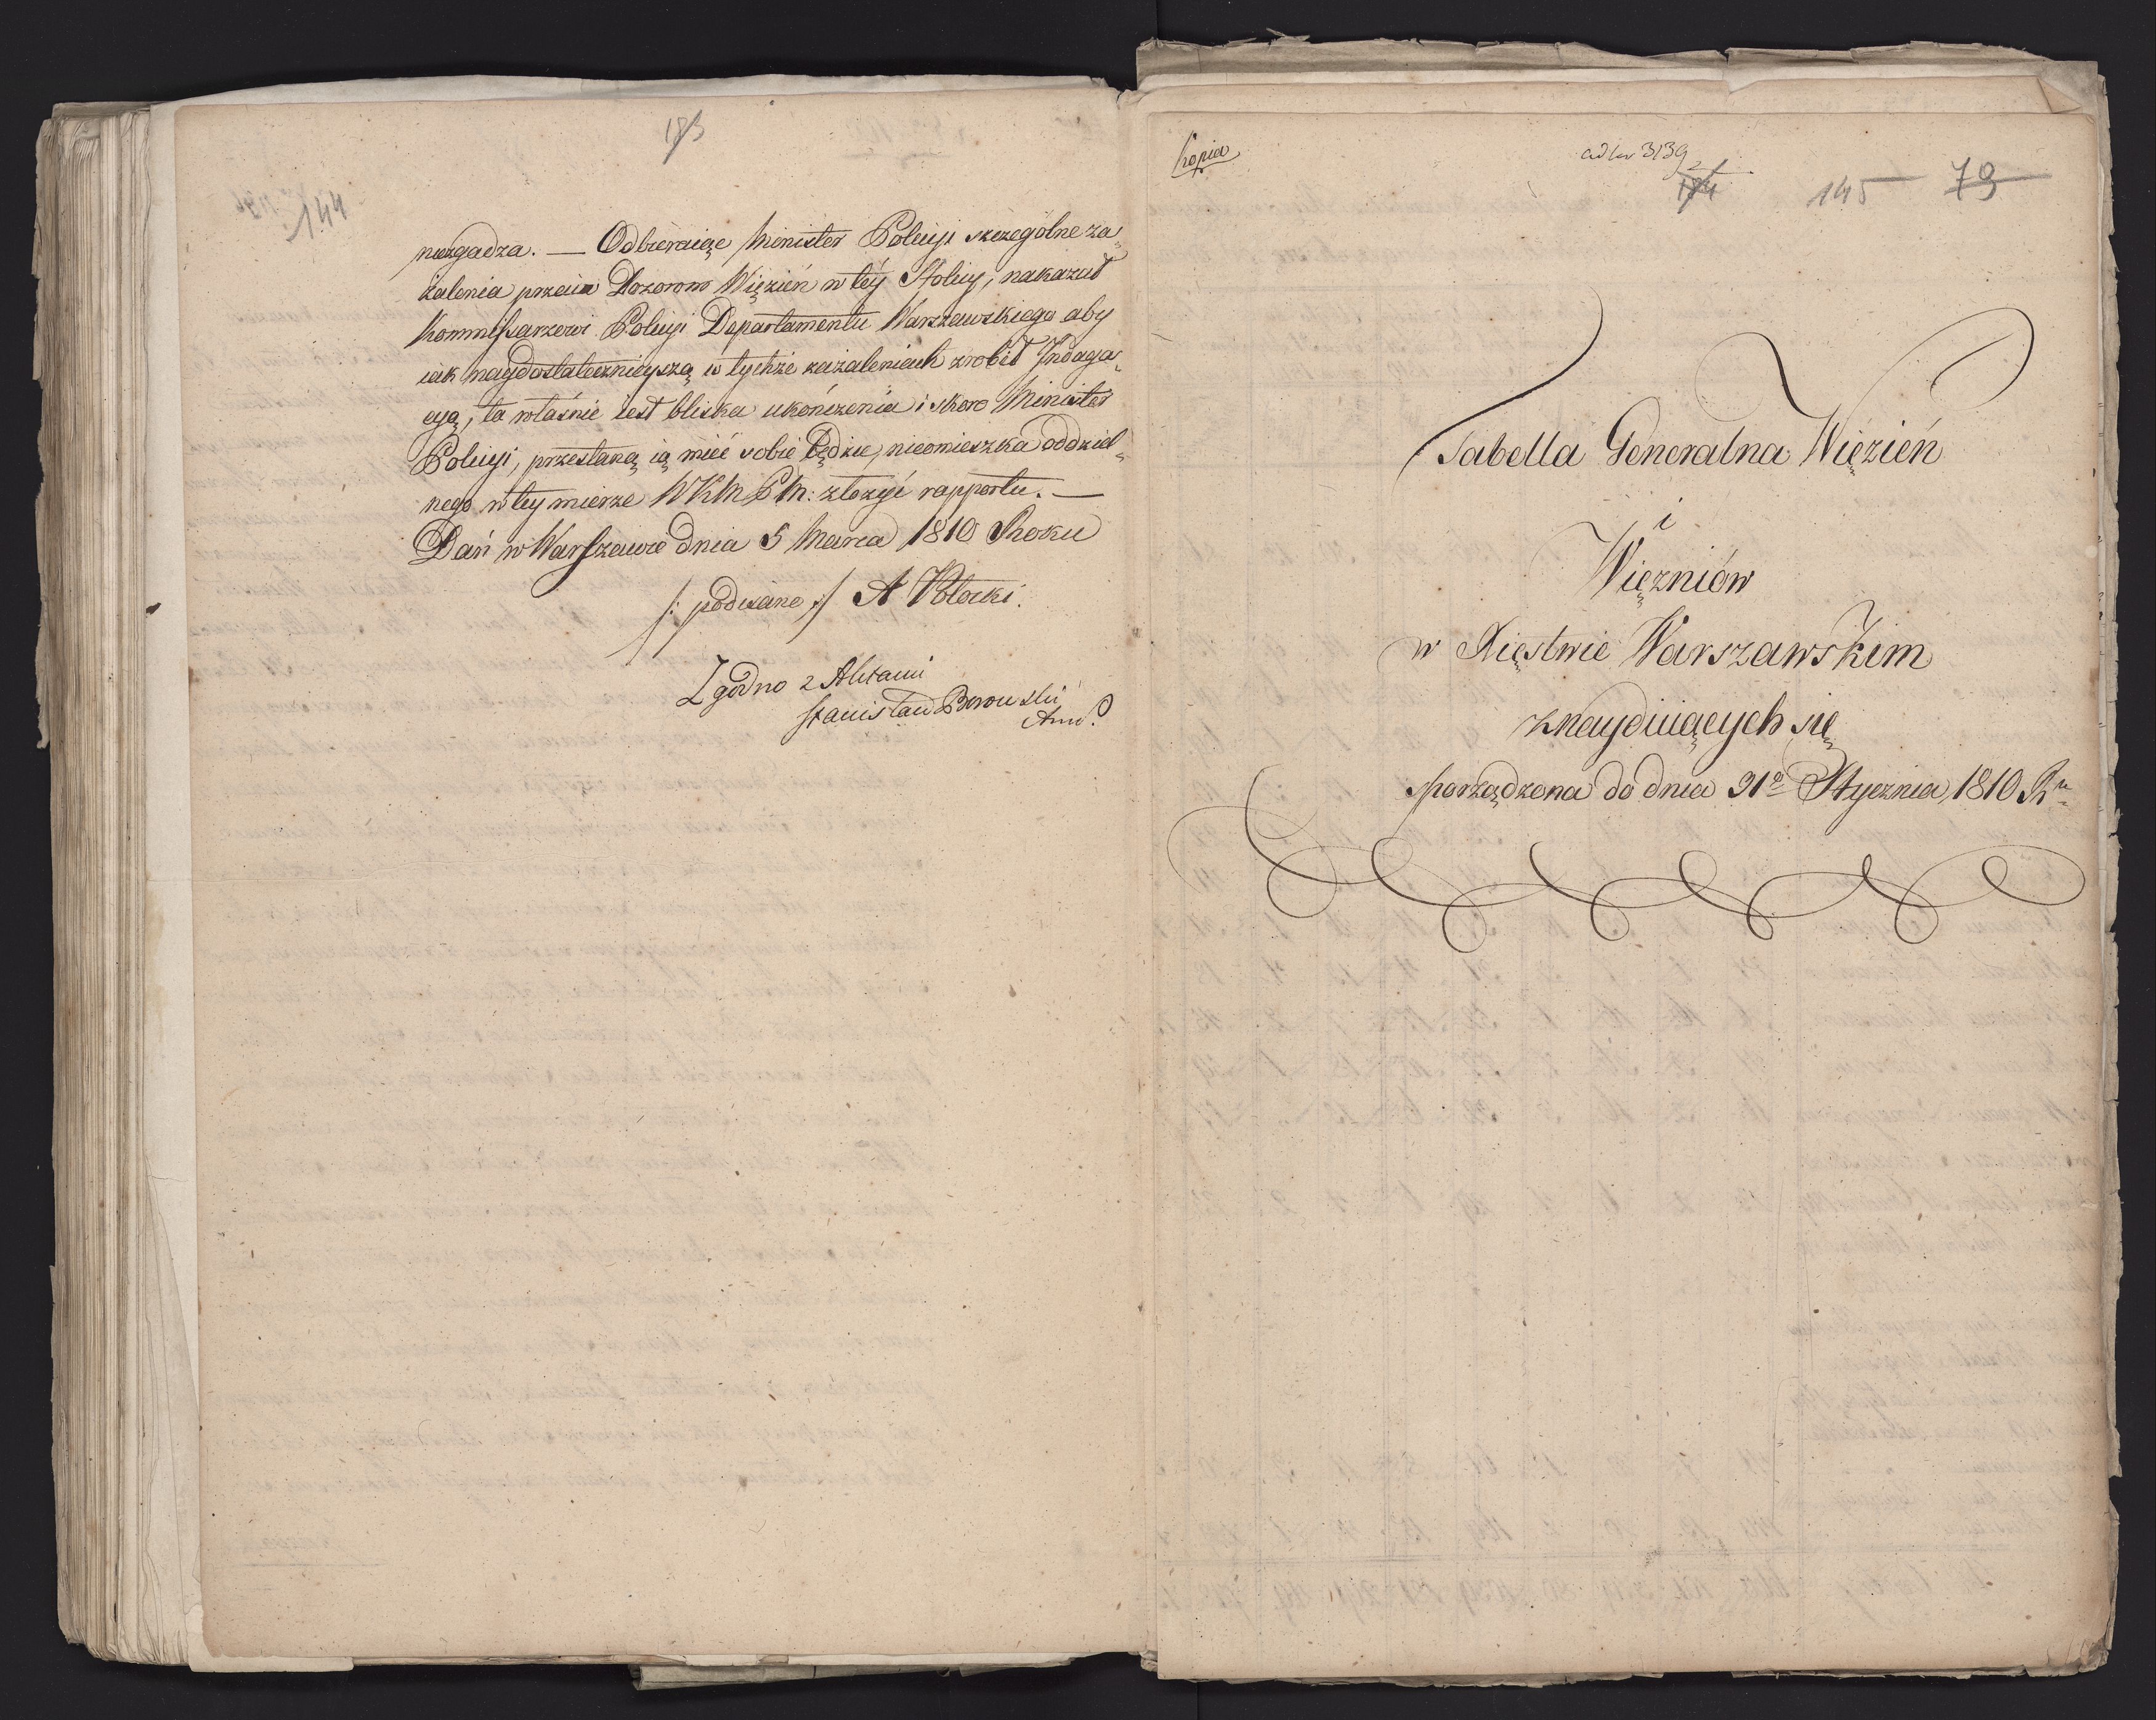 183
144
niezgadza. — Odbieraiąc Minister Policyi szczególne za„
żalenia przeciw Dozorom Więzień w tey Stolicy, nakazał
Kommissarzowi Policyi Departamentu Warszawskiego aby
iak naydostatecznieyszą w tychże zażaleniach zrobił Indaga„
cyą, ta właśnie iest bliska ukończenia i skoro Minister
Policyi, przesłaną ią mieć sobie będzie, nieomieszka oddziel„
nego w tey mierze WKM PM: złożyć rapportu. —
Dań w Warszawie dnia 5 Marca 1810 Roku
/: podpisano :/ A Potocki.
Zgodno z Aktami
Stanisław Borowski
Kopia
ad 3139
184
145
79
Tabella Generalna Więzień
i
Więzniów
w Xięstwie Warszawskim
znayduiących się
sporządzona do dnia 31º Stycznia 1810 Ru